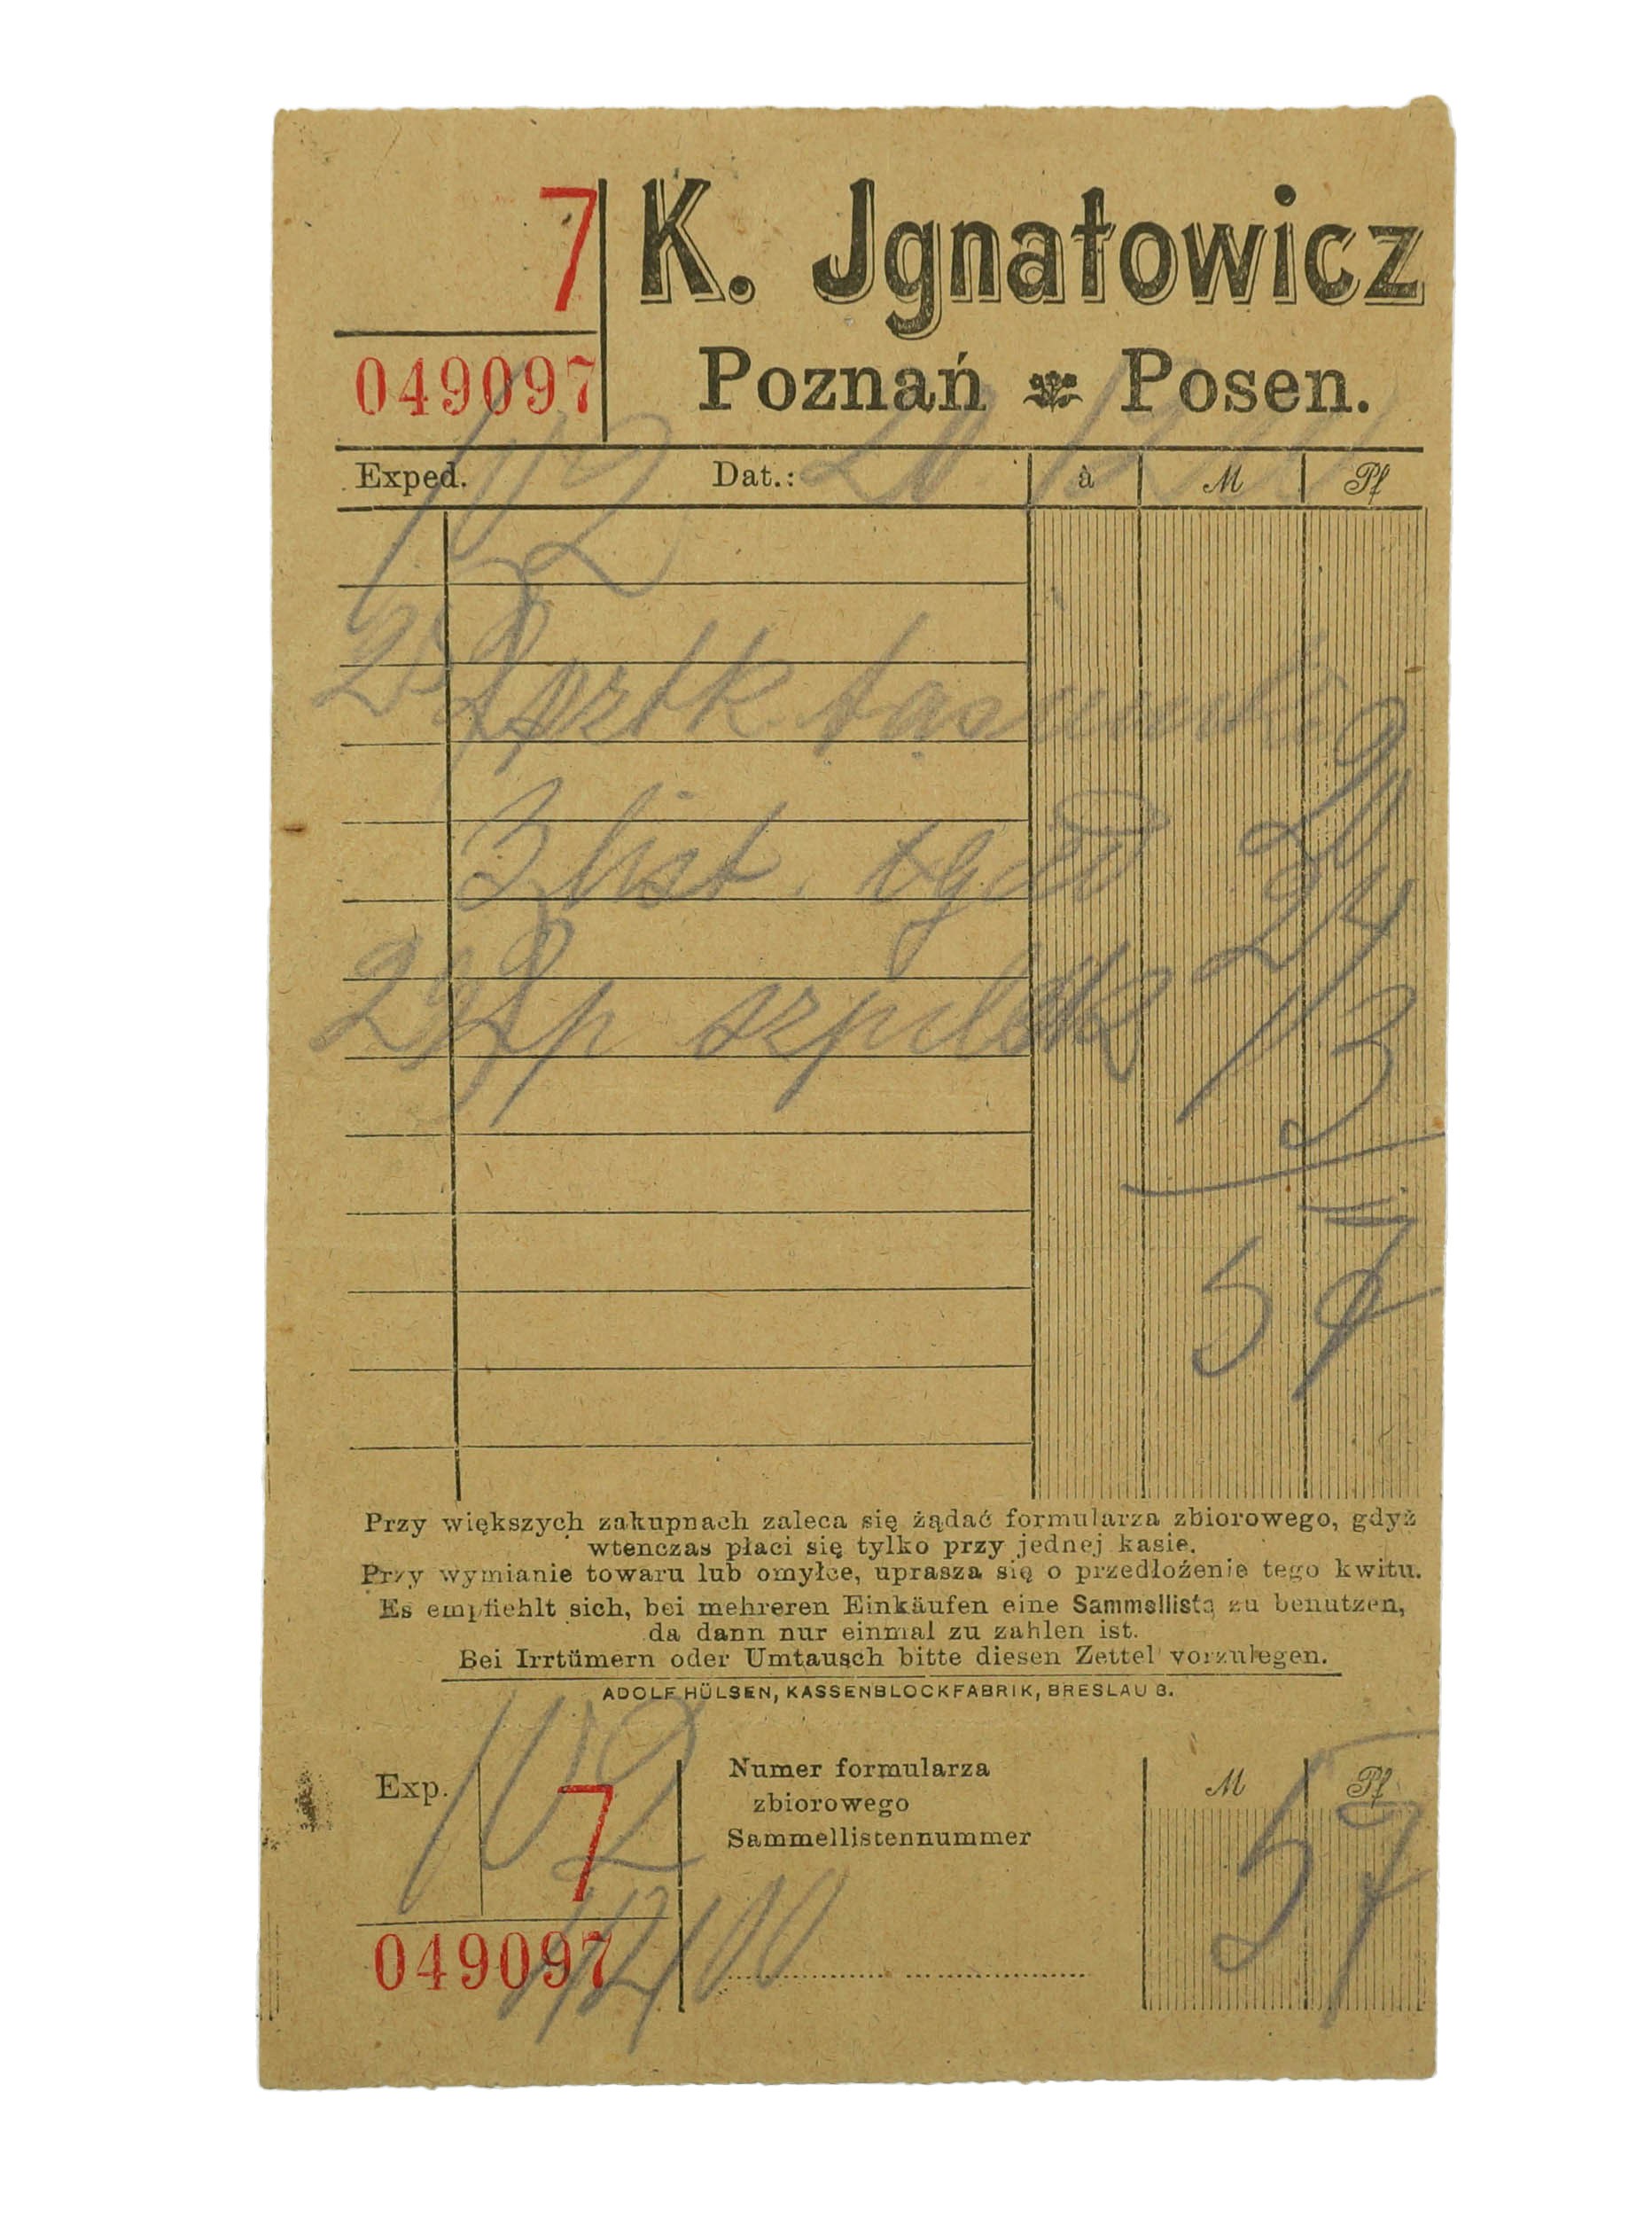 7
K. Jgnatowicz
049097
Poznań Posen.
Exped. Dat.: 20 12 à M Pf
102
sztk tasiemki
20
3 list. igieł 24
2 p szpilek 13
57
Przy większych zakupnach zaleca się żądać formularza zbiorowego, gdyż
wtenczas płaci się tylko przy jednej kasie.
Przy wymianie towaru lub omyłce, uprasza się o przedłożenie tego kwitu.
Es empfiehlt sich, bei mehreren Einkäufen eine Sammelliste zu benutzen,
da dann nur einmal zu zahlen ist.
Bei Irrtümern oder Umtausch bitte diesen Zettel vorzulegen.
ADOLF HÜLSEN, KASSENBLOCKFABRIK, BRESLAU 8.
102
Exp. 7 Numer formularza M Pf
zbiorowego
Sammellistennummer
57
049097